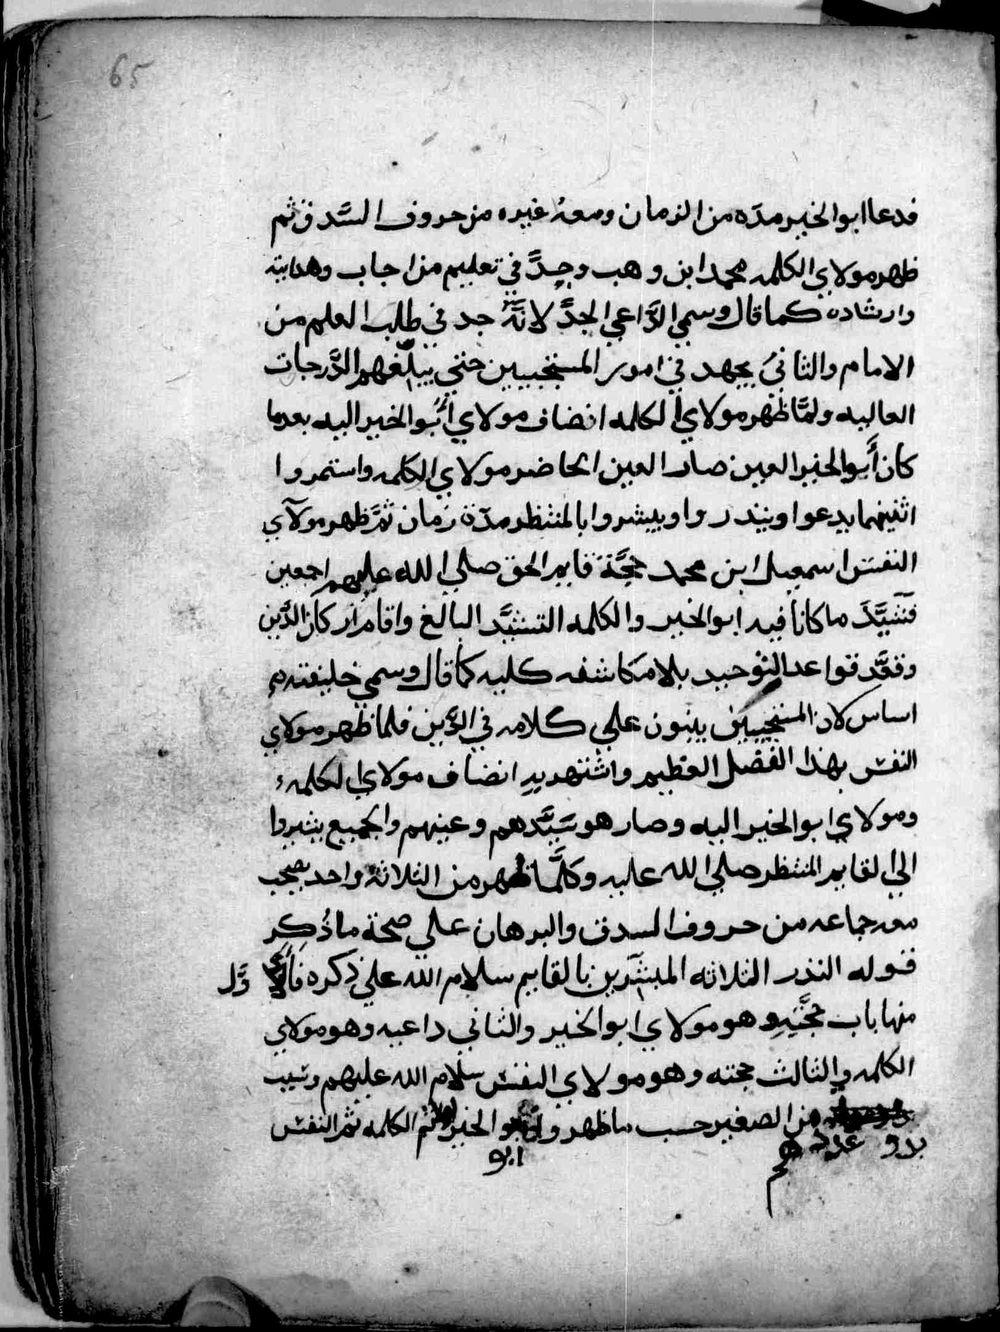 65
فدعا ابو الخير مدّه من الزمان ومعهُ غيره من حروف السَّدق ثم
ظهر مولاي الكلمه محمد ابن وهب وجدَّ في تعليم من اجاب وهدايته
وارشاده كما قال وسمي الدَّاعي الجدَّ لانَّهُ جد في طلب العلم من
الامام والثانيُ يجهد في امور المستجيبين حتي يبلِّغهم الدَّرجات
العاليه ولمَّا ظهر مولاي الكلمه انضاف مولاي ابُو الخير اليه بعدما
كان أَبو الخير العين صار العين الحاضر مولاي الكلمه واستمروا
اثنينهما يدعوا وينذروا ويبشروا بالمنتظر مدّة زمان ثمَّ ظهر مولآي
النفس اسمعيل ابن محمد حجَّة قايم الحق صلي الله عليهم اجمعين
فشيَّدَ ما كانا فيه ابو الخير والكلمه التشيَّد البالغ واقام اركان الدَّين
وقعَّد قواعد التوحيد بلا مكاشفه كليه كما قال وسمي خليفته
اساس لان المستجيبين يبنون علي كلامه في الدَّين فلما ظهر مولاي
النفس بهذا الفضل العظيم واشتهر به انضاف مولاي الكلمهُ
ومولاي ابو الخير اليه وصار هو سَيَّدهم وعينهم والجميع يشيروا
الي القايم المنتظر صلي الله عليه وكلَّما ظهر من الثلاثهُ واحد يصحب
معه جماعه من حروف السدق والبرهان علي صحة ما ذُكِر
قوله النذر الثلاثه المبشّرين بالقايم سلام الله علي ذكره فأَلاوَّل
منها باب حُجَّتِهِ وهو مولاي ابو الخير والثاني داعيه وهو مولاي
الكلمه والثالث حجته وهو مولاي النفس سلام الله عليهم وتُيب
من الصغير حسب ما ظهر وا ابو الخير ثم الكلمه ثم النفس
بدو عددهم
ابو